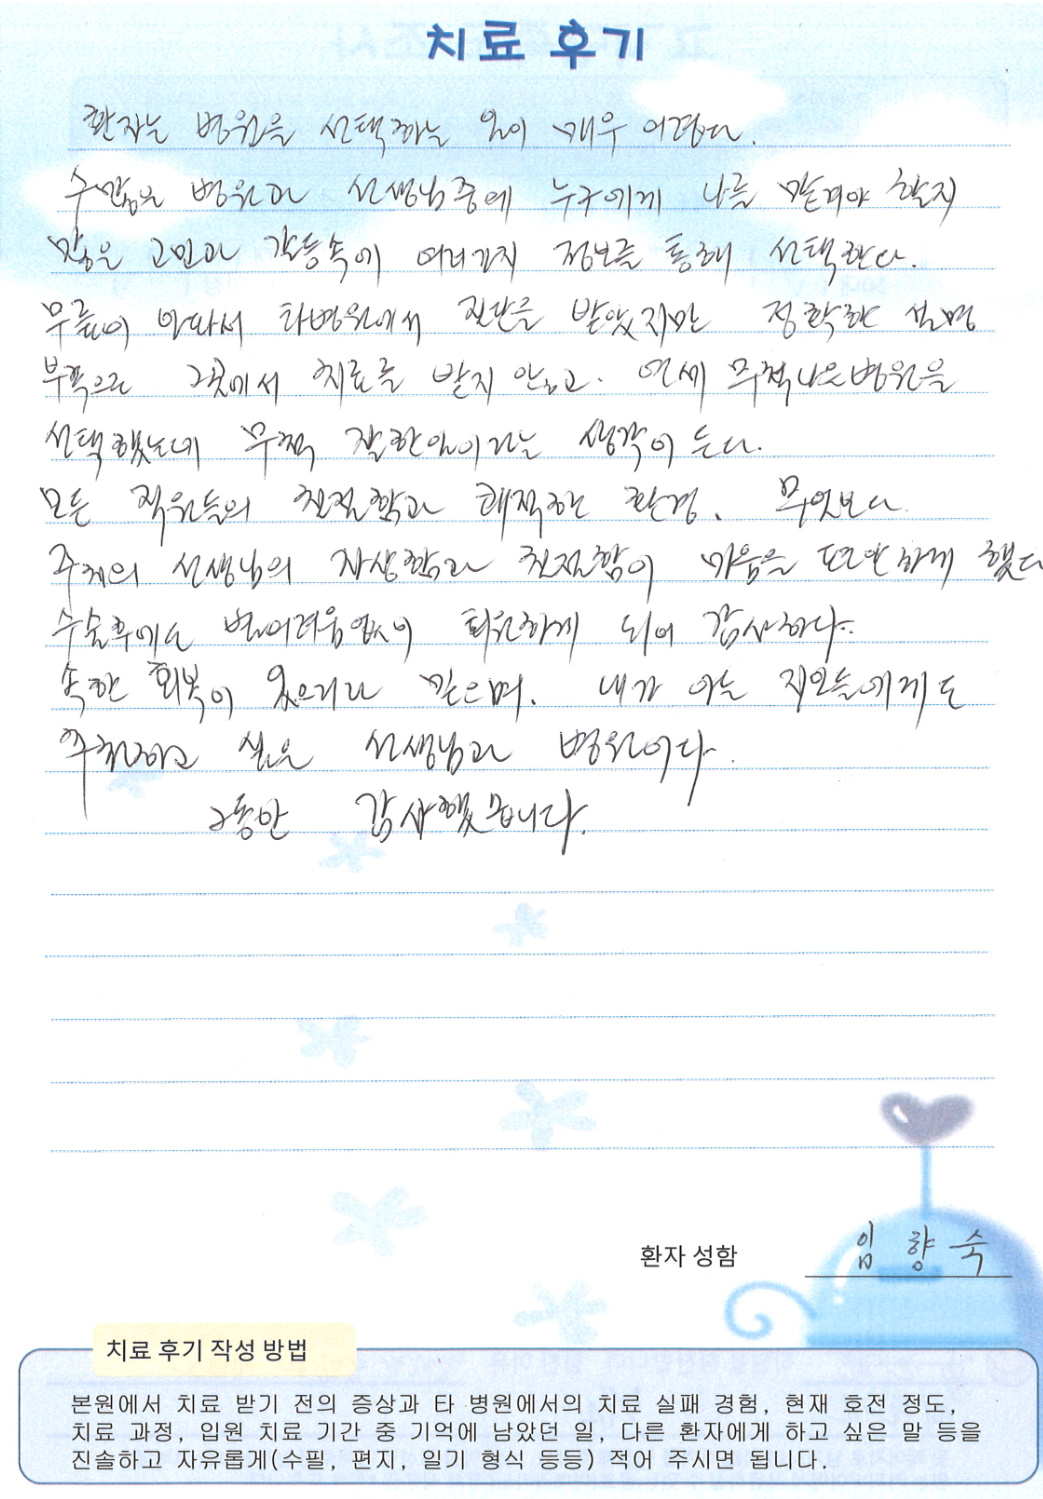 치료 후기
환자는 병원을 선택하는 일이 매우 어렵다.
수많은 병원과 선생님중에 누구에게 나를 맡겨야 할지
많은 고민과 갈등속에 여러가지 정보를 통해 선택한다.
무릎이 아파서 타병원에서 진단을 받았지만 정확한 설명
부족으로 그곳에서 치료를 받지 않고. 연세 무척나은병원을
선택했는데 무척 잘한일이라는 생각이 든다.
모든 직원들의 친절함과 쾌적한 환경. 무엇보다
주치의 선생님의 자상함과 친절함이 마음을 또 편안하게 했다
수술후에도 별어려움없이 퇴원하게 되어 감사하다.
속한 회복이 있으리라 믿으며. 내가 아는 지인들에게도
추천하고 싶은 선생님과 병원이다.
그동안 감사했습니다.
환자 성함 임 향 숙
치료 후기 작성 방법
본원에서 치료 받기 전의 증상과 타 병원에서의 치료 실패 경험, 현재 호전 정도,
치료 과정, 입원 치료 기간 중 기억에 남았던 일, 다른 환자에게 하고 싶은 말 등을
진솔하고 자유롭게(수필, 편지, 일기 형식 등등) 적어 주시면 됩니다.